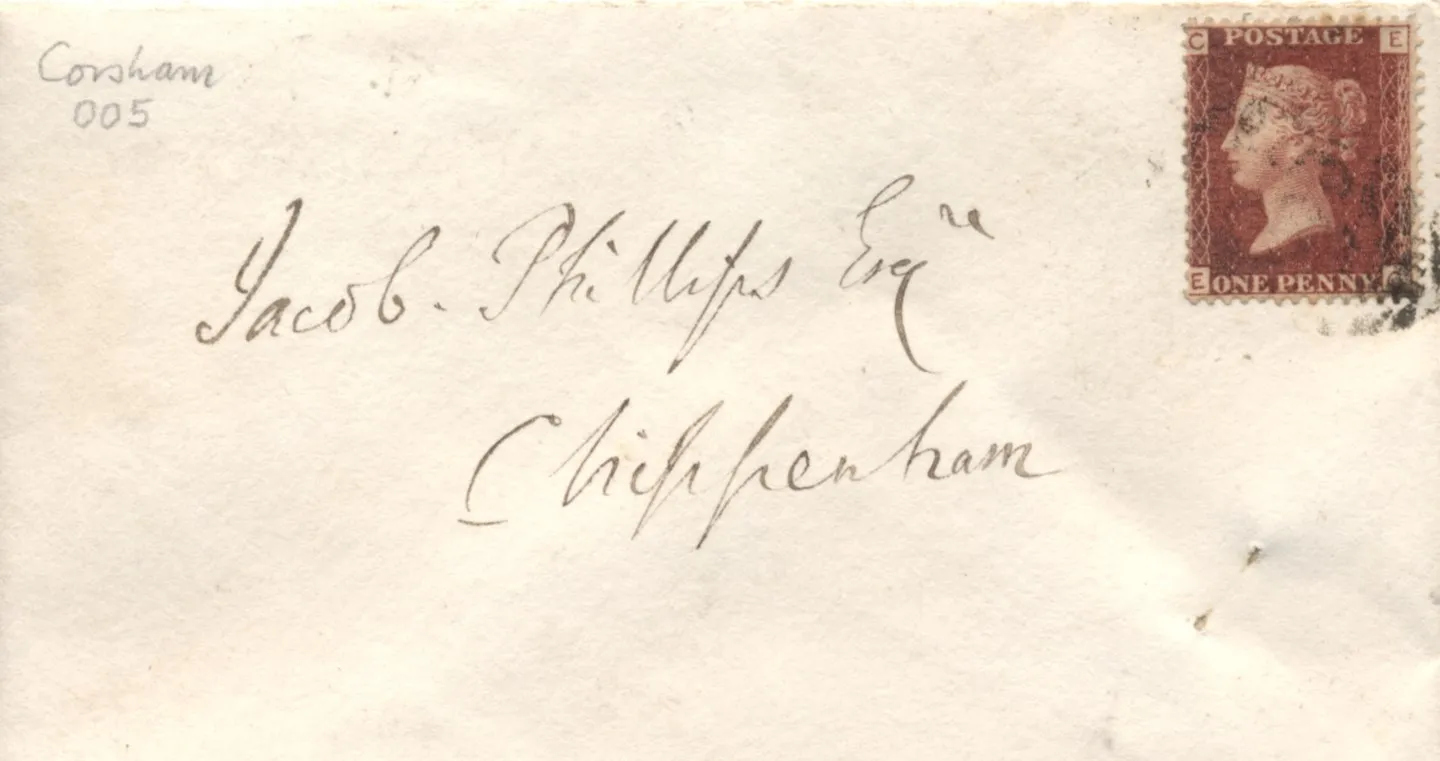 Corsham
005
C POSTAGE E
E ONE PENNY
Jacob. Phillips Esqre
Chippenham